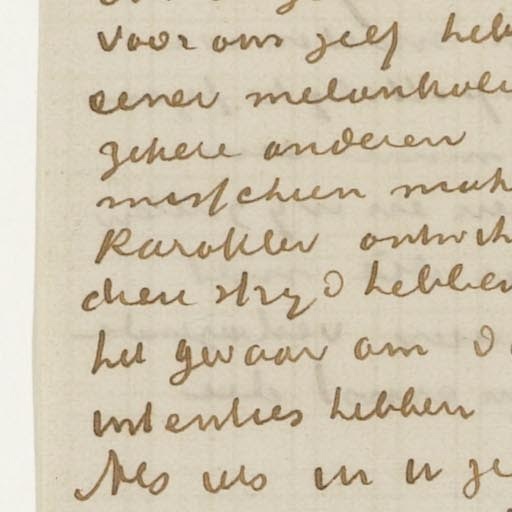 voor ons zelf heb
eener melankoli
zekere anderen
misschien mak
Karakter ontwik
dien stryd hebben
het gevaar om d
intenties hebben
Als iets in u ze